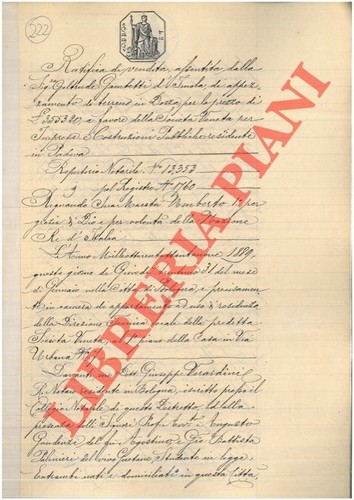 222
Ratifica di vendita assentita dalla
Sig.ra Geltrude Gambetti d'Imola, di appez-
zamento di terreno in Dozza, per lo prezzo di
£ 3553.20, a favore della Società Veneta per
Imprese e Costruzioni Pubbliche residente
in Padova
Repertorio Notarile N° 13353
pel Registro N° 1760
Regnando Sua Maestà Umberto I° per
grazia di Dio e per volontà della Nazione
Re d'Italia
L'Anno Milleottocentottantanove 1889,
questo giorno di Giovedì trentuno 31 del mese
di Gennaio nella Città di Bologna e precisamen-
te in camera di appartamento ad uso di residenza
della Direzione locale della predetta
Società Veneta piano della Casa in Via
Urbana N°
Davanti me Dott. Giuseppe Verardini
R. Notaro residente in Bologna, iscritto presso il
Collegio Notarile di questo Distretto, ed alla
presenza delli Signori Augusto
Gaudenzi del fu Agostino, e Gio. Battista
Palmieri del vivo Gaetano, Studente in legge,
Entrambi nati e domiciliati in questa Città,
LIBRERIA PIANI